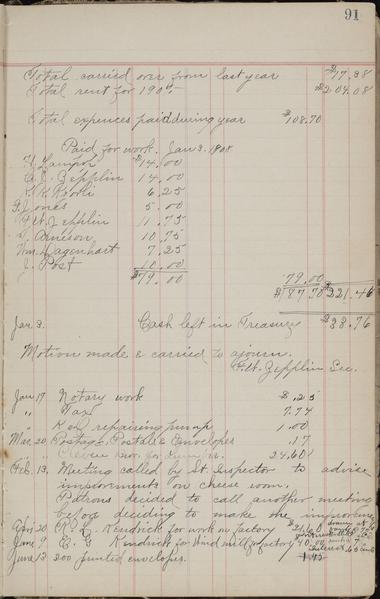 91
Total carried over from last year $17.38
Total rent for 190 $204.08
Total expences paid during year $108.70
Paid for work Jan 3. 1908
$14.00
C. Zepplin 14.00
6.25
G. Jones 5.00
F. W. Zepplin 11.75
Arneson 10.75
Wm. Hagenhart 7.25
J. Post 10.00
$79.00 79.00
$187.70 $221.46
Jan. 3. Cash left in Treasury $33.76
Motion made & carried to ajourn.
F. W. Zepplin Sec.
Jan 17 Notary work $.25
" Tax 7.74
" repairing pump 1.00
Mar. 20 Postage, Postals & Envelopes .17
24.60
Feb. 13. Meeting called by St. Inspector to advise
improvments on cheese room.
Patrons decided to call another meeting
before deciding to make the improvmts
Apr 20 R. L. Kendrick for work on factory $21.60
June 9 E. G. Kendrick for Wind mill & factory 40.00
June 13 200 printed envelopes. 1.45